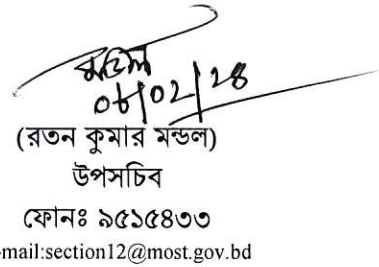 ০৮/০২/২৪
(রতন কুমার মন্ডল)
উপসচিব
ফোনঃ ৯৫১৫৪৩৩
-mail:section12@most.gov.bd